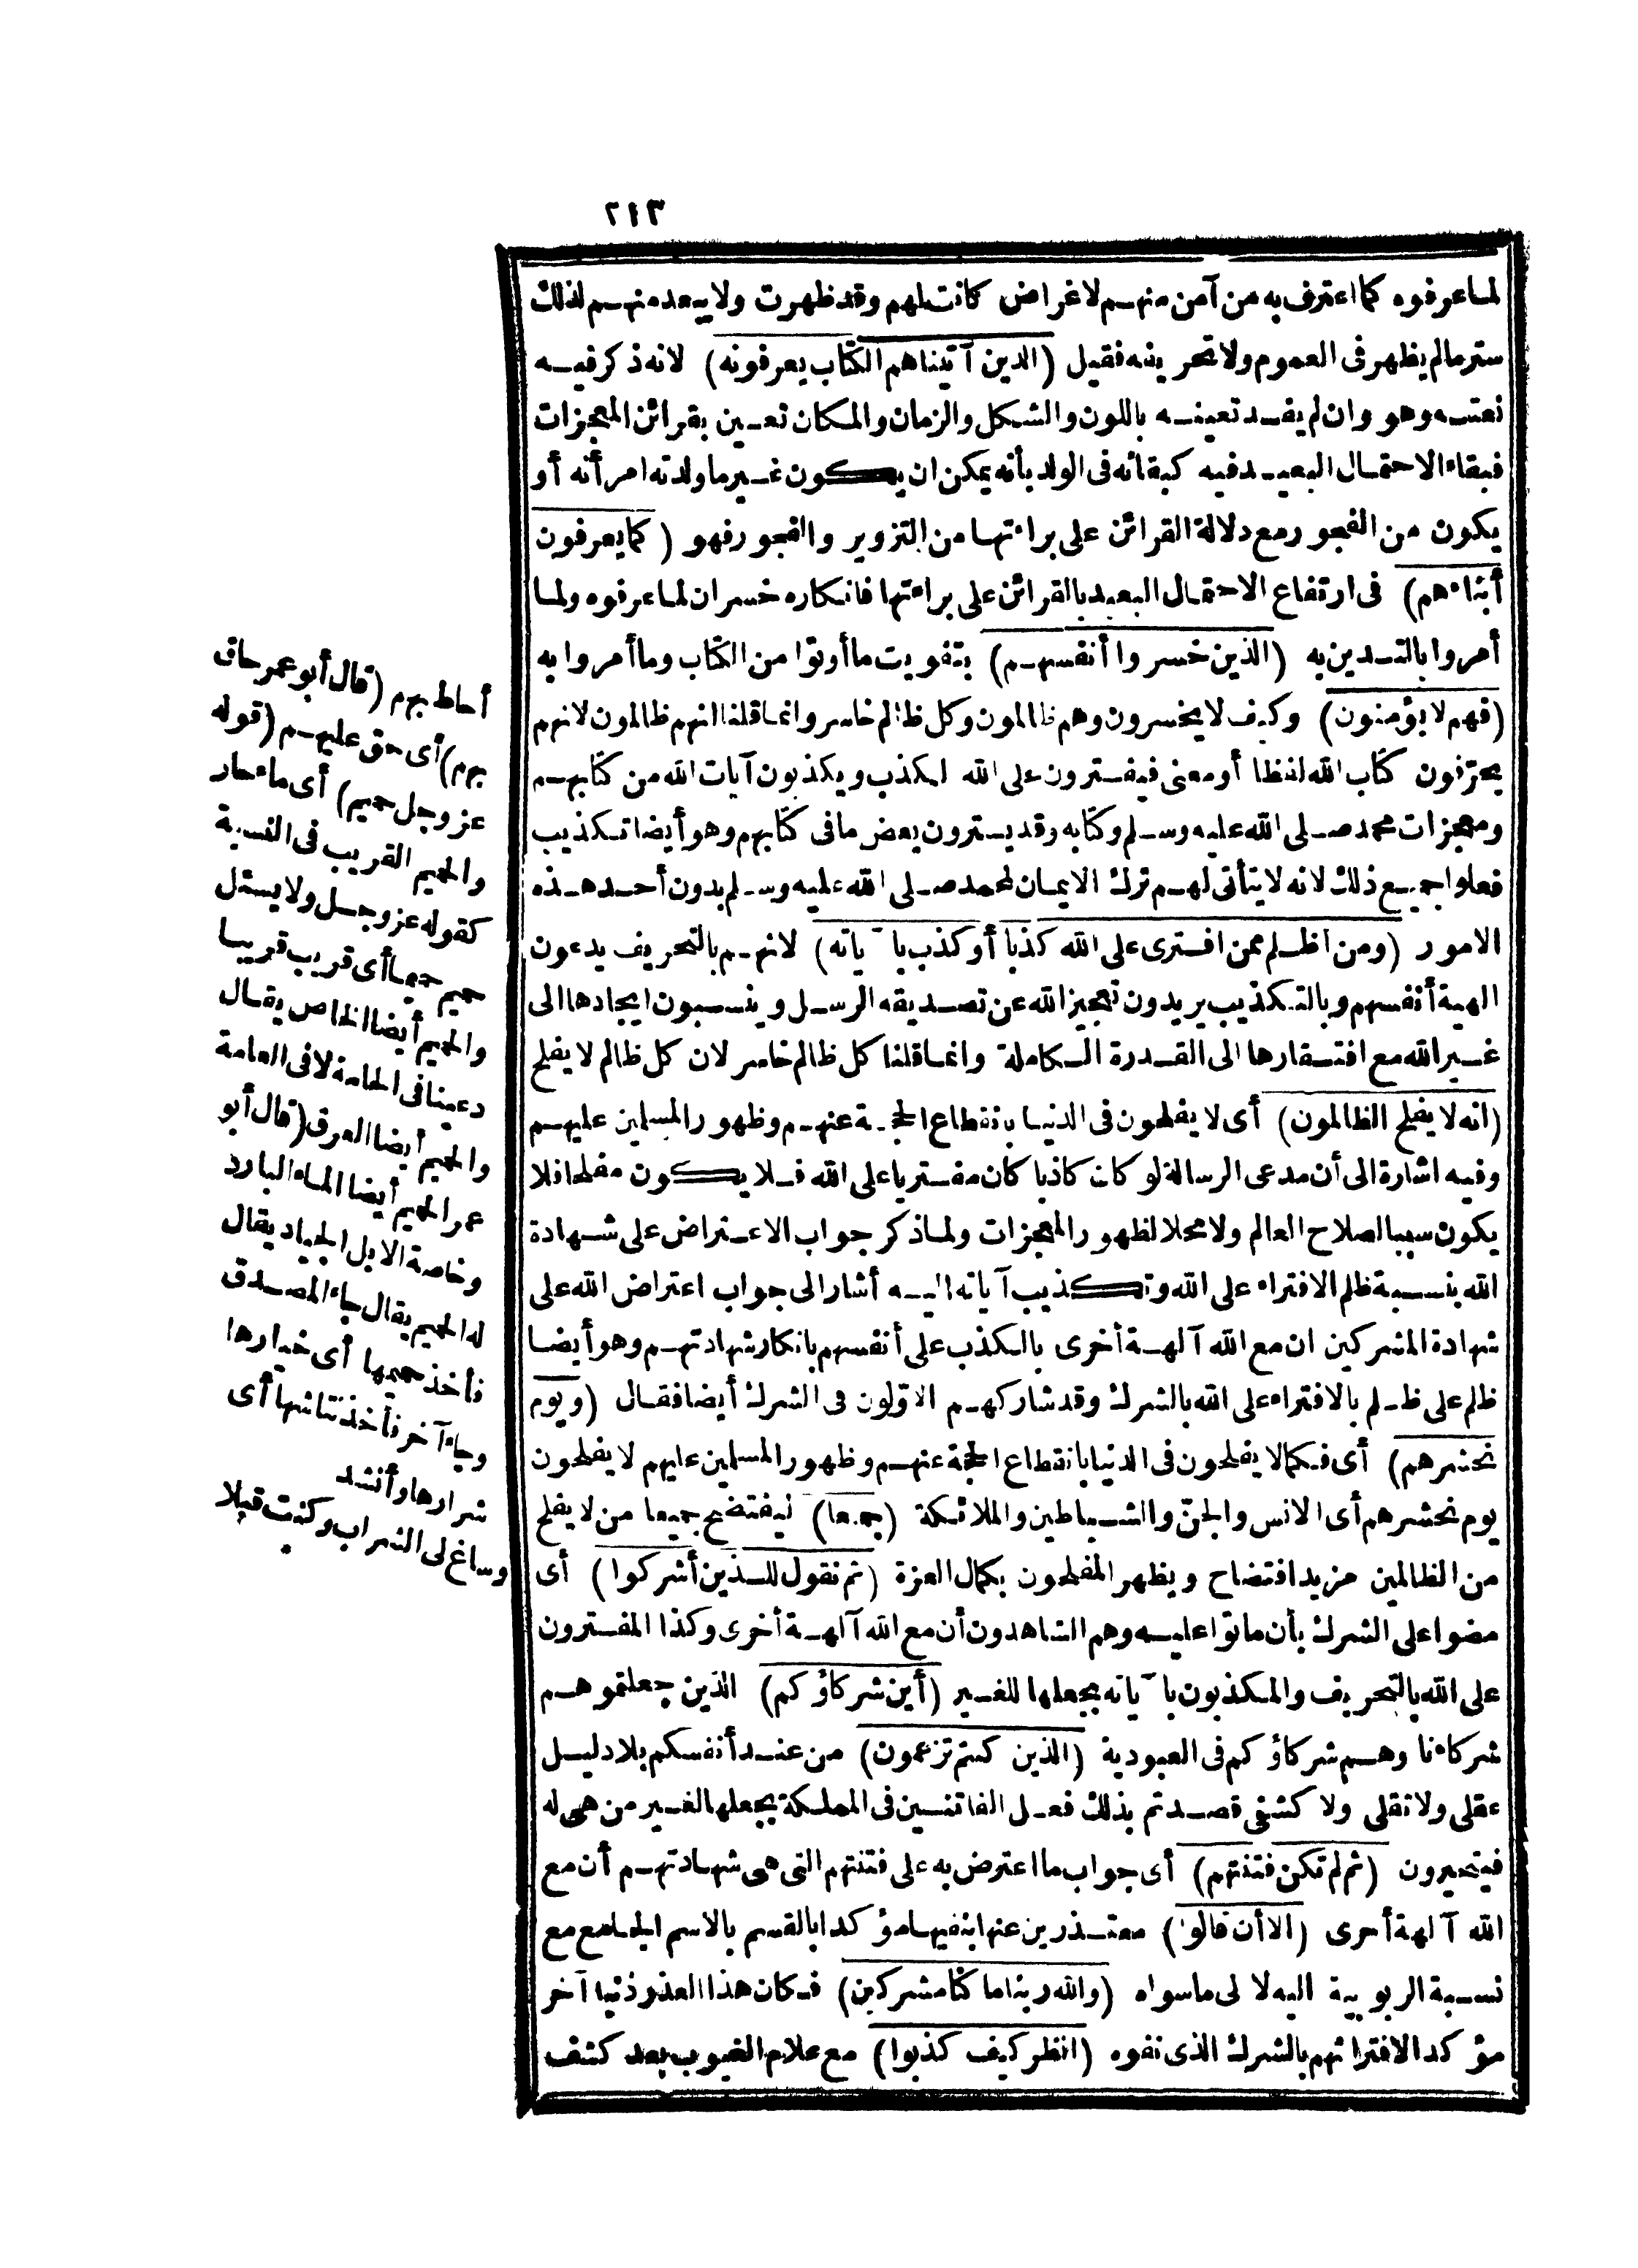 ٢١٣
لما عرفوه كما اعترف به من آمن منهم لاغراض كانت لهم وقد ظهرت ولا يبعد منهم لذلك
ستر مالم يظهر فى العموم ولا تحريفه فقيل (الذين آتيناهم الكتاب يعرفونه) لانه ذكر فيه
نعته وهو وان لم يفد تعينه باللون والشكل والزمان والمكان تعين بقرائن المعجزات
فبقاء الاحتمال البعيد فيه كبقائه فى الولد بأنه يمكن ان يكون غير ما ولدته امرأته أو
يكون من الفجور مع دلالة القرائن على براءتها من التزوير والفجور فهو (كما يعرفون
أبناءهم) فى ارتفاع الاحتمال البعيد بالقرائن على براءتها فانكاره خسران لما عرفوه ولما
أمروا بالتدين به (الذين خسروا أنفسهم) بتفويت ما أوتوا من الكتاب وما أمروا به
(فهم لا يؤمنون) وكيف لا يخسرون وهم ظالمون وكل ظالم خاسر وانما قلنا انهم ظالمون لانهم
يحرّفون كتاب الله لفظا أو معنى فيفترون على الله الكذب ويكذبون آيات الله من كتابهم
ومعجزات محمد صلى الله عليه وسلم وكتابه وقد يسترون بعض ما فى كتابهم وهو أيضا تكذيب
فعلوا جميع ذلك لانه لا يتأتى لهم ترك الايمان لمحمد صلى الله عليه وسلم بدون أحد هذه
الامور (ومن أظلم ممن افترى على الله كذبا أو كذب بآياته) لانهم بالتحريف يدعون
الهية أنفسهم وبالتكذيب يريدون تعجيز الله عن تصديقه الرسل وينسبون ايجادها الى
غير الله مع افتقارها الى القدرة الكاملة وانما قلنا كل ظالم خاسر لان كل ظالم لا يفلح
(انه لا يفلح الظالمون) أى لا يفلحون فى الدنيا بانقطاع الحجة عنهم وظهور المسلمين عليهم
وفيه اشارة الى أن مدعى الرسالة لو كان كاذبا كان مفتريا على الله فلا يكون مفلحا فلا
يكون سببا لصلاح العالم ولا محلا لظهور المعجزات ولما ذكر جواب الاعتراض على شهادة
الله بنسبة ظلم الافتراء على الله وتكذيب آياته اليه أشار الى جواب اعتراض الله على
شهادة المشركين ان مع الله آلهة أخرى بالكذب على أنفسهم بانكار شهادتهم وهو أيضا
ظلم على ظلم بالافتراء على الله بالشرك وقد شاركهم الاوّلون فى الشرك أيضا فقال (ويوم
نحشرهم) أى فكما لا يفلحون فى الدنيا بانقطاع الحجة عنهم وظهور المسلمين عليهم لا يفلحون
يوم نحشرهم أى الانس والجنّ والشياطين والملائكة (جميعا) ليفتضح جميعا من لا يفلح
من الظالمين مزيد افتضاح ويظهر المفلحون بكمال العزة (ثم نقول للذين أشركوا) أى
مضوا على الشرك بأن ماتوا عليه وهم الشاهدون أن مع الله آلهة أخرى وكذا المفترون
على الله بالتحريف والمكذبون بآياته بجعلها للغير (أين شركاؤكم) الذين جعلتموهم
شركاءنا وهم شركاؤكم فى العبودية (الذين كنتم تزعمون) من عند أنفسكم بلا دليل
عقلى ولا نقلى ولا كشفى قصدتم بذلك فعل الفاتنين فى المملكة بجعلها لغير من هى له
فيتحيرون (ثم لم تكن فتنتهم) أى جواب ما اعترض به على فتنتهم التى هى شهادتهم أن مع
الله آلهة أخرى (الا أن قالوا) معتذرين عنها بنفيها مؤكدا بالقسم بالاسم الجامع مع
نسبة الربوبية اليه لا الى ما سواه (والله ربنا ما كنا مشركين) فكان هذا العذر ذنبا آخر
مؤكد الافترائهم بالشرك الذى نفوه (انظر كيف كذبوا) مع علام الغيوب بعد كشف
أحاط بهم (قال أبو عمر حاق
بهم) أى حق عليهم (قوله
عز وجل حميم) أى ماء حار
والحميم القريب فى النسبة
كقوله عز وجل ولا يسئل
حميم حميما أى قريب قريبا
والحميم أيضا الخاص يقال
دعينا فى الحامة لا فى العامة
والحميم أيضا العرق (قال أبو
عمر الحميم أيضا الماء البارد
وخاصة الابل الجياد يقال
له الحميم يقال جاء المصدق
فأخذ حميمها أى خيارها
وجاء آخر فأخذ نتاشها أى
شرارها وأنشد
وساغ لى الشراب وكنت قبلا